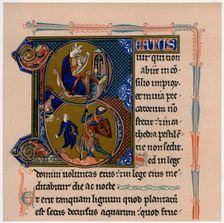 BEATUS
uir qui non
abiit in con
silio impior
et in uia pec
catorum non
stetit et in ca
thedra pestil
non sedit
Sed in lege
domini uoluntas eius et in lege eius me
ditabitur die ac nocte
Et erit tanquam lignum quod plantatum
est secus decursus aquarum quod fruc